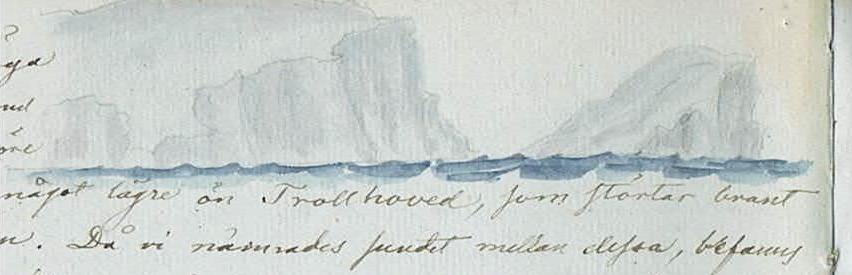 något lägre ön Trollhoved, som störtar brant
Då vi närmades sundet mellan dessa, befanns